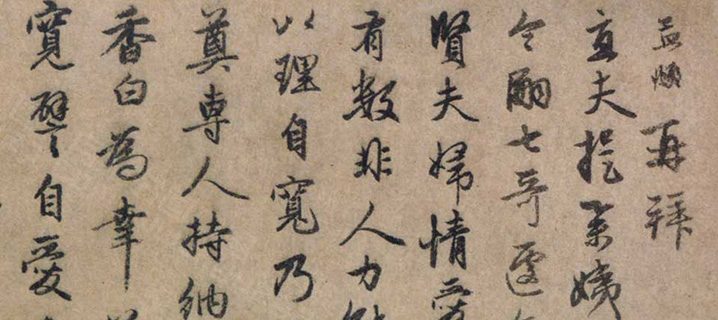 孟頫再拜
直夫提舉姨
令嗣七哥遽
賢夫婦情愛
有數非人力
以理自寬乃
奠專人持納
香白為幸
寬譬自愛